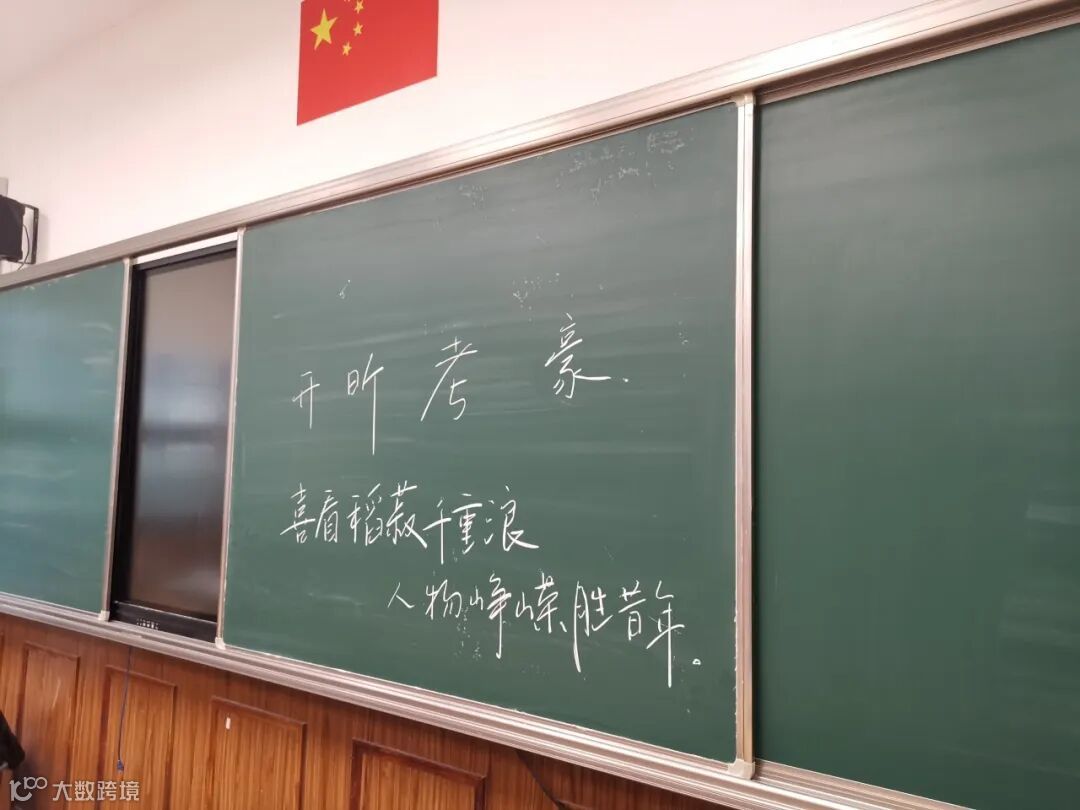 开昕考豪.
喜看稻菽千重浪
人物峥嵘胜昔年。
大数跨境